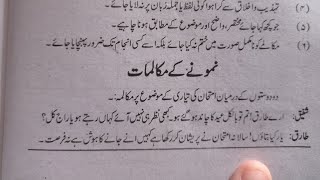 (۴) تہذیب و اخلاق سے گرا ہوا کوئی لفظ یا جملہ زبان پر نہ لایا جائے۔
(۵) جو کچھ کہا جائے مختصر، واضح اور موضوع کے مطابق ہونا چاہیے۔
(۶) مکالمے کو نامکمل صورت میں ختم نہ کیا جائے بلکہ اسے کسی انجام تک ضرور پہنچایا جائے۔
نمونے کے مکالمات
دو دوستوں کے درمیان امتحان کی تیاری کے موضوع پر مکالمہ:
شفیق: ارے طارق! تم تو بالکل عید کا چاند ہو گئے ہو۔ کبھی نظر ہی نہیں آئے کہاں رہتے ہو یار آج کل؟
طارق: یار کیا بتاؤں! سالانہ امتحان نے پریشان کر رکھا ہے کہیں آنے جانے کا ہوش ہے نہ فرصت۔